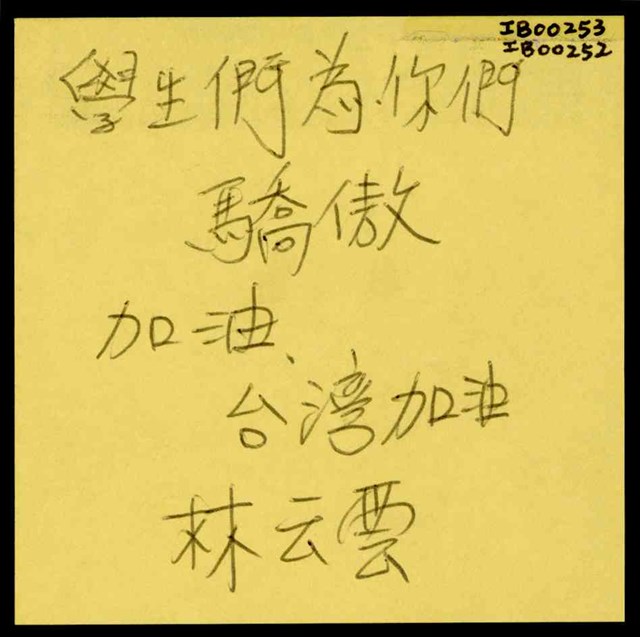 IB00253
IB00252
學生們為你們
驕傲
加油、
台灣加油
林云雲